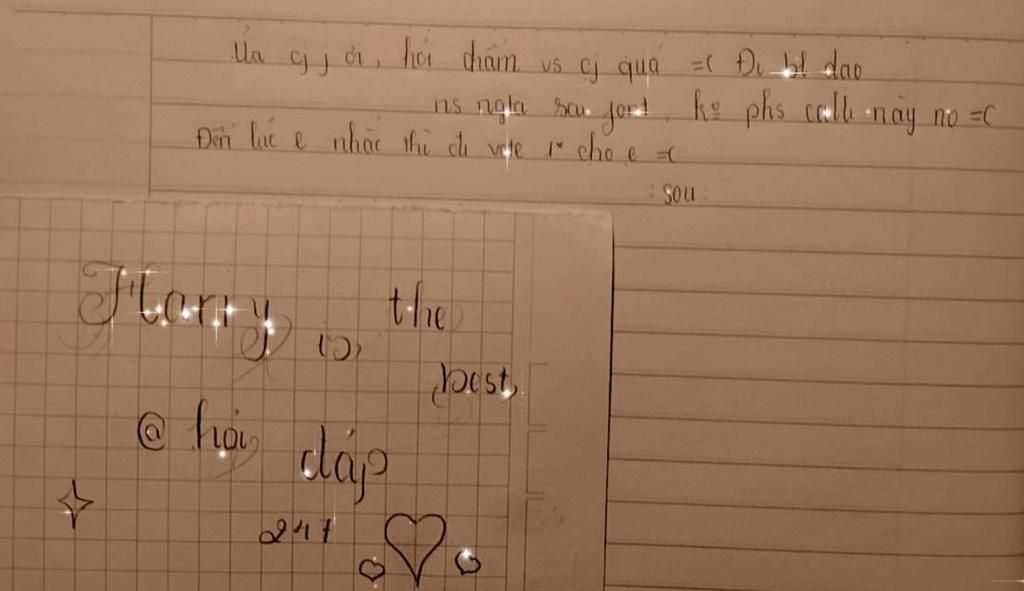 Ủa cj j ơi, hỏi chấm vs cj quá =( Đi bt dạo
ns ngta sau font, ko phs calli này no =(
Đến lúc e nhắc thì đi vote 1* cho e =(
:sou:
Harry is the
best,
@ hỏi
đáp
247